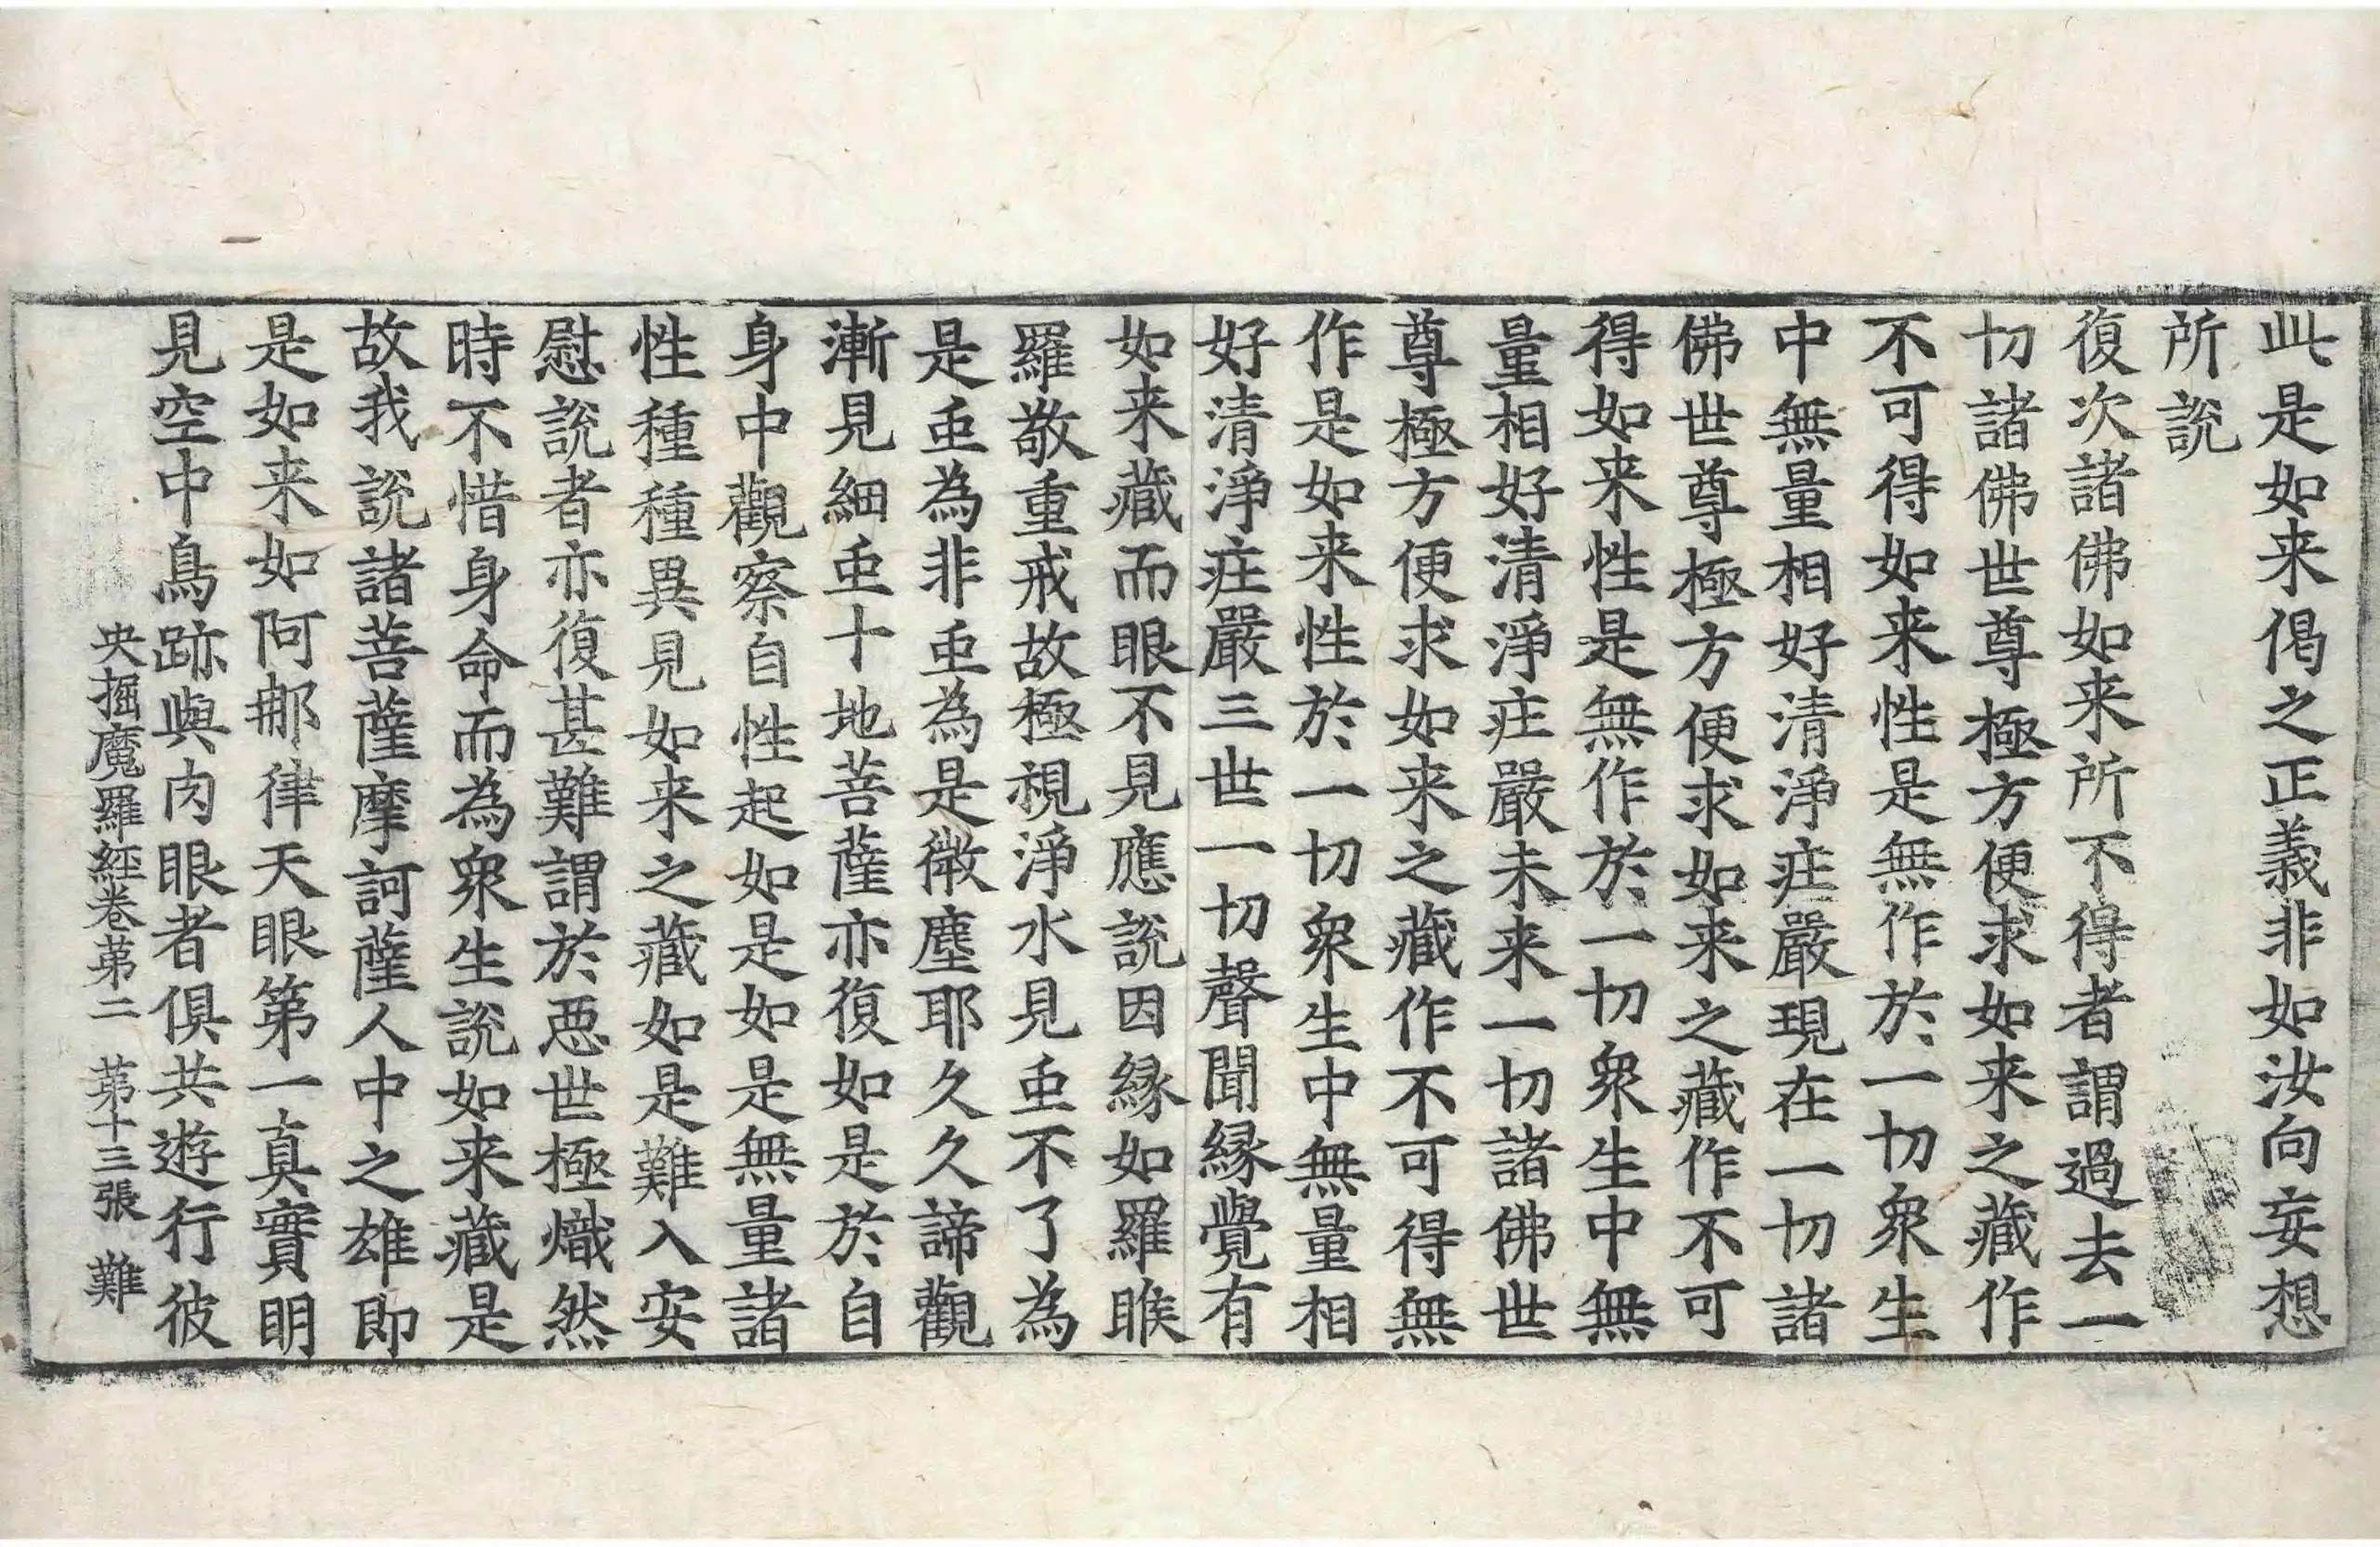 此是如来偈之正義非如汝向妄想
所說
復次諸佛如来所不得者謂過去一
切諸佛世尊極方便求如来之藏作
不可得如来性是無作於一切衆生
中無量相好清淨疰嚴現在一切諸
佛世尊極方便求如来之藏作不可
得如来性是無作於一切衆生中無
量相好清淨疰嚴未来一切諸佛世
尊極方便求如来之藏作不可得無
作是如来性於一切衆生中無量相
好清淨疰嚴三世一切聲聞縁覺有
如来藏而眼不見應說因縁如羅睺
羅敬重戒故極視淨水見䖝不了為
是䖝為非䖝為是微塵耶久久諦觀
漸見細䖝十地菩薩亦復如是於自
身中觀察自性起如是如是無量諸
性種種異見如来之藏如是難入安
慰說者亦復甚難謂於惡世極熾然
時不惜身命而為衆生說如来藏是
故我說諸菩薩摩訶薩人中之雄即
是如来如阿那律天眼第一真實明
見空中鳥跡與肉眼者俱共遊行彼
央掘魔羅經卷苐二　苐十三張　難